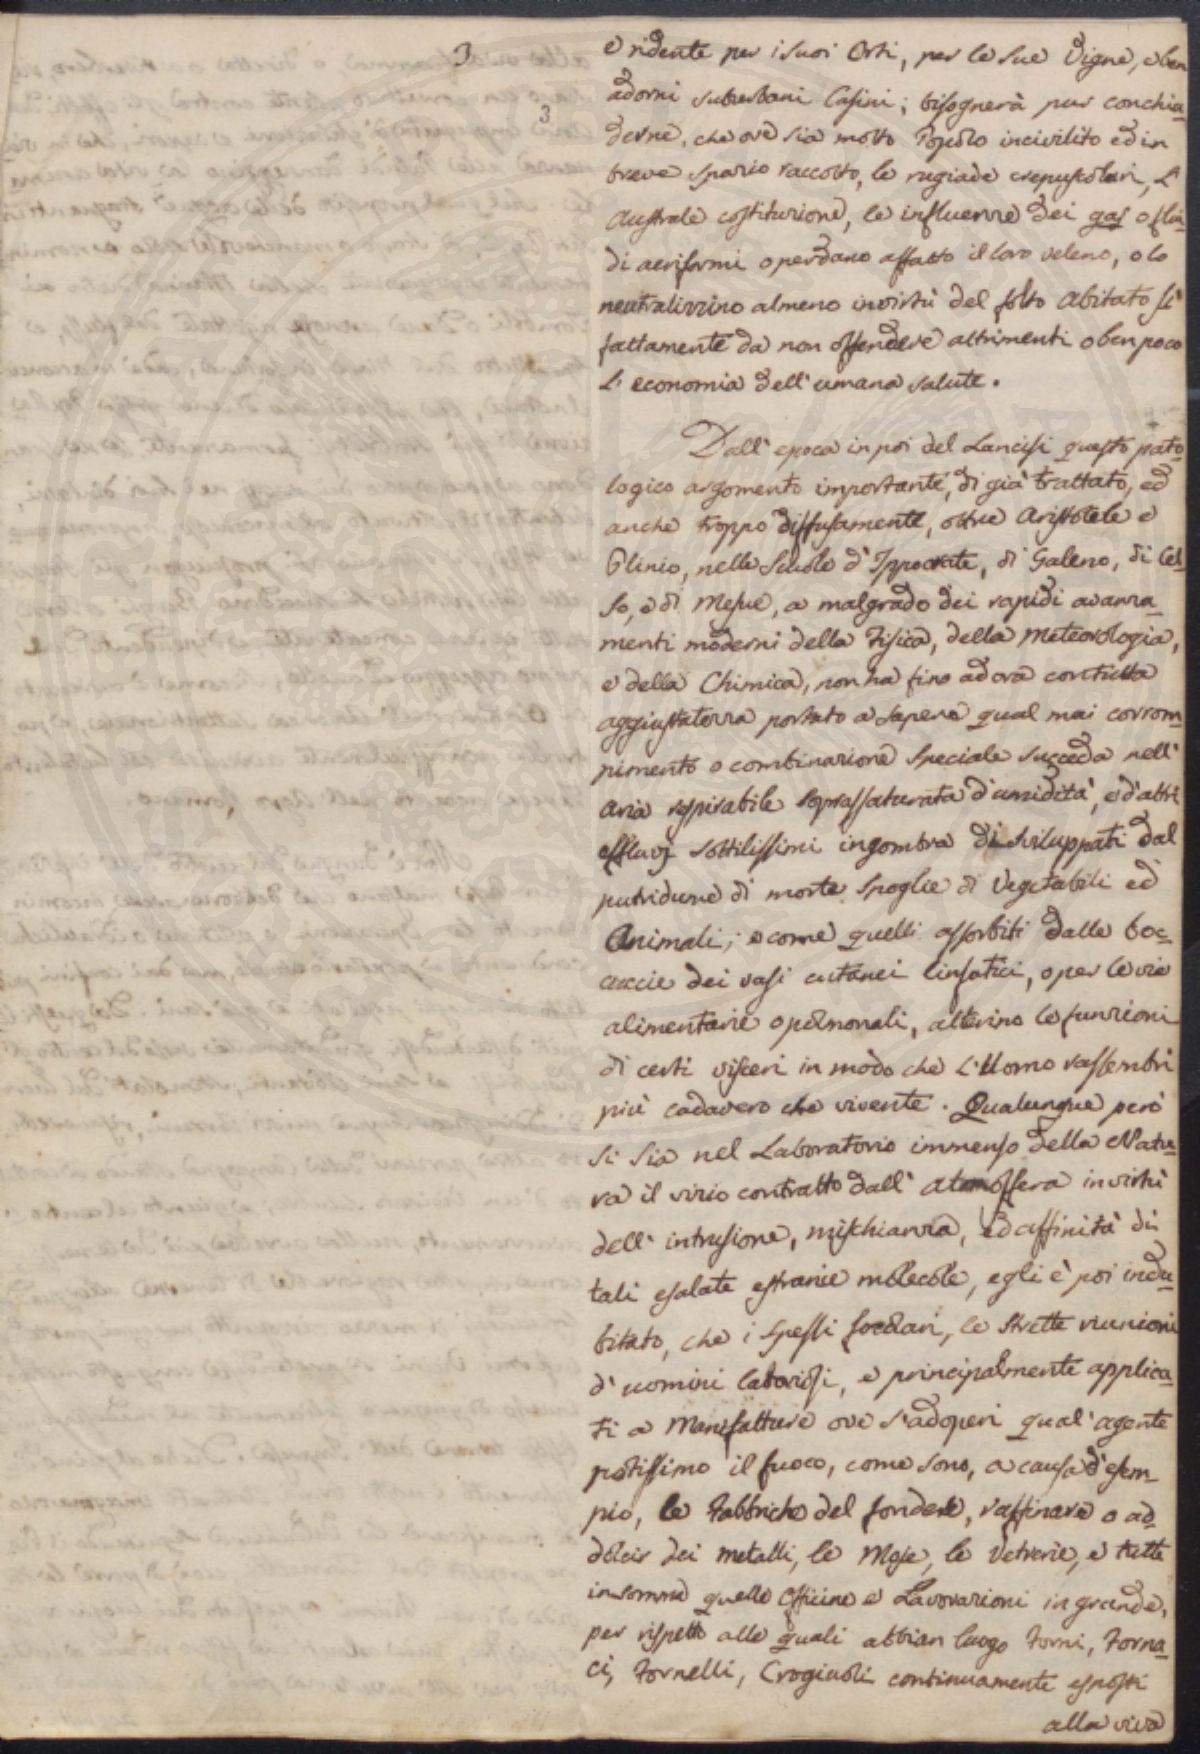 3
3
e ridente per i suoi Orti, per le sue Vigne, e ben
adorni suburbani Casini; bisognerà pur conchiu-
derne, che ove sia molto Popolo incivilito ed in
breve spazio raccolto, le rugiade crepuscolari, l'
Australe costituzione, le influenze dei gas o flui-
di aeriformi o perdano affatto il loro veleno, o lo
neutralizzino almeno in virtù del folto abitato sì
fattamente da non offendere altrimenti o ben poco
l'economia dell'umana salute.
Dall'epoca in poi del Lancisi questo pato-
logico argomento importante, di già trattato, ed
anche troppo diffusamente, oltre Aristotele e
Plinio, nelle Scuole d'Ippocrate, di Galeno, di Cel-
so, e di Mesue, a malgrado dei rapidi avanza-
menti moderni della Fisica, della Meteorologia,
e della Chimica, non ha fino ad ora con tutta
aggiustatezza portato a sapere qual mai corrom-
pimento o combinazione speciale succeda nell'
aria respirabile soprassaturata d'umidità, e d'altri
effluvj sottilissimi ingombra di sviluppati dal
putridume di morte spoglie di Vegetabili ed
Animali; e come quelli assorbiti dalle boc-
cuccie dei vasi cutanei linfatici, o per le vie
alimentarie o polmonali, alterino le funzioni
di certi visceri in modo che l'Uomo rassembri
più cadavero che vivente. Qualunque però
si sia nel Laboratorio immenso della Natu-
ra il vizio contratto dall'atmosfera in virtù
dell'intrusione, mischianza, ed affinità di
tali esalate estranie molecole, egli è poi indu-
bitato, che i spessi focolari, le strette riunioni
d'uomini laboriosi, e principalmente applica-
ti a Manifatture ove s'adoperi qual'agente
potissimo il fuoco, come sono, a causa d'esem-
pio, le Fabbriche del fondere, raffinare o ad-
dolcir dei metalli, le Moje, le Vetrerie, e tutte
insomma quelle Officine e Lavorazioni in grande,
per rispetto alle quali abbian luogo Forni, Forna-
ci, Fornelli, Crogiuoli continuamente esposti
alla viva